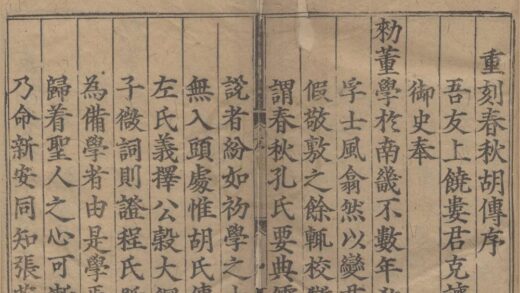 重刻春秋胡傳序
吾友上饒婁君克讓
御史奉
勑董學於南畿不數年
孚士風翕然以變
假敬敷之餘輒校
謂春秋孔氏要典儒
說者紛如初學之士
無入頭處惟胡氏傳
左氏義擇公穀大綱
子微詞則證程氏
為備學者由是學焉
歸着聖人之心可
乃命新安同知張